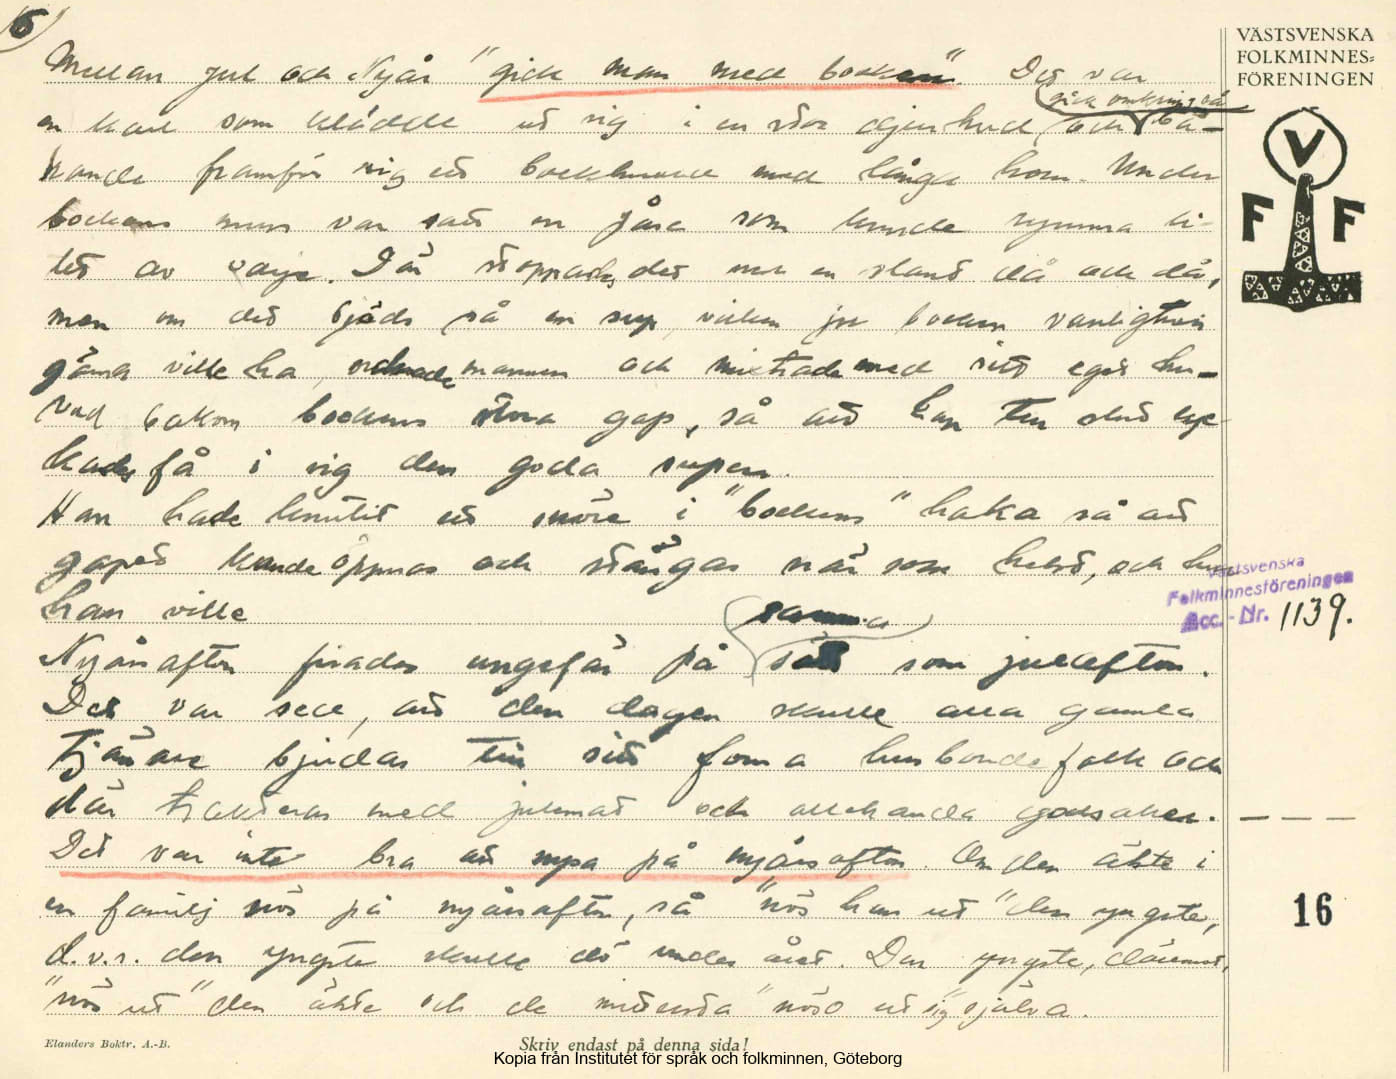 6
VÄSTSVENSKA
FOLKMINNES-
FÖRENINGEN
V
F F
Mellan jul och Nyår "gick man med bocken". Det var
gick omkring så
en karl som klädde ut sig i en stor djurhud och bä-
rande framför sig ett bockhuvud med långa horn. Under
bockens mun var satt en som kunde rymma li-
tet av varje. Där stoppades det ner en slant då och då,
men om det bjöds på en sup, vilken ju bocken vanligtvis
gärna ville ha, mannen och mixtrade med sitt eget hu-
vud bakom bockens stora gap, så att han till slut lyc-
kades få i sig den goda supen.
Han hade knutit ett snöre i "bockens" haka så att
gapet kunde öppnas och stängas när som helst, och hur
han ville
samma
Nyårsafton firades ungefär på sätt som julafton.
Det var sed, att den dagen skulle alla gamla
tjänare bjudas till sitt forna husbondefolk och
där trakteras med julmat och allehanda godsaker.
Det var inte bra att nysa på nyårsafton. Om den äldste i
en familj nös på nyårsafton, så "nös han ut" den yngste,
d.v.s. den yngste skulle dö under året. Den yngste, däremot,
"nös ut" den äldste och de mittersta "nöso ut sig" själva.
Västsvenska
Folkminnesföreningen
Acc. - Nr. 1139.
16
Elanders Boktr. A.-B.
Skriv endast på denna sida!
Kopia från Institutet för språk och folkminnen, Göteborg